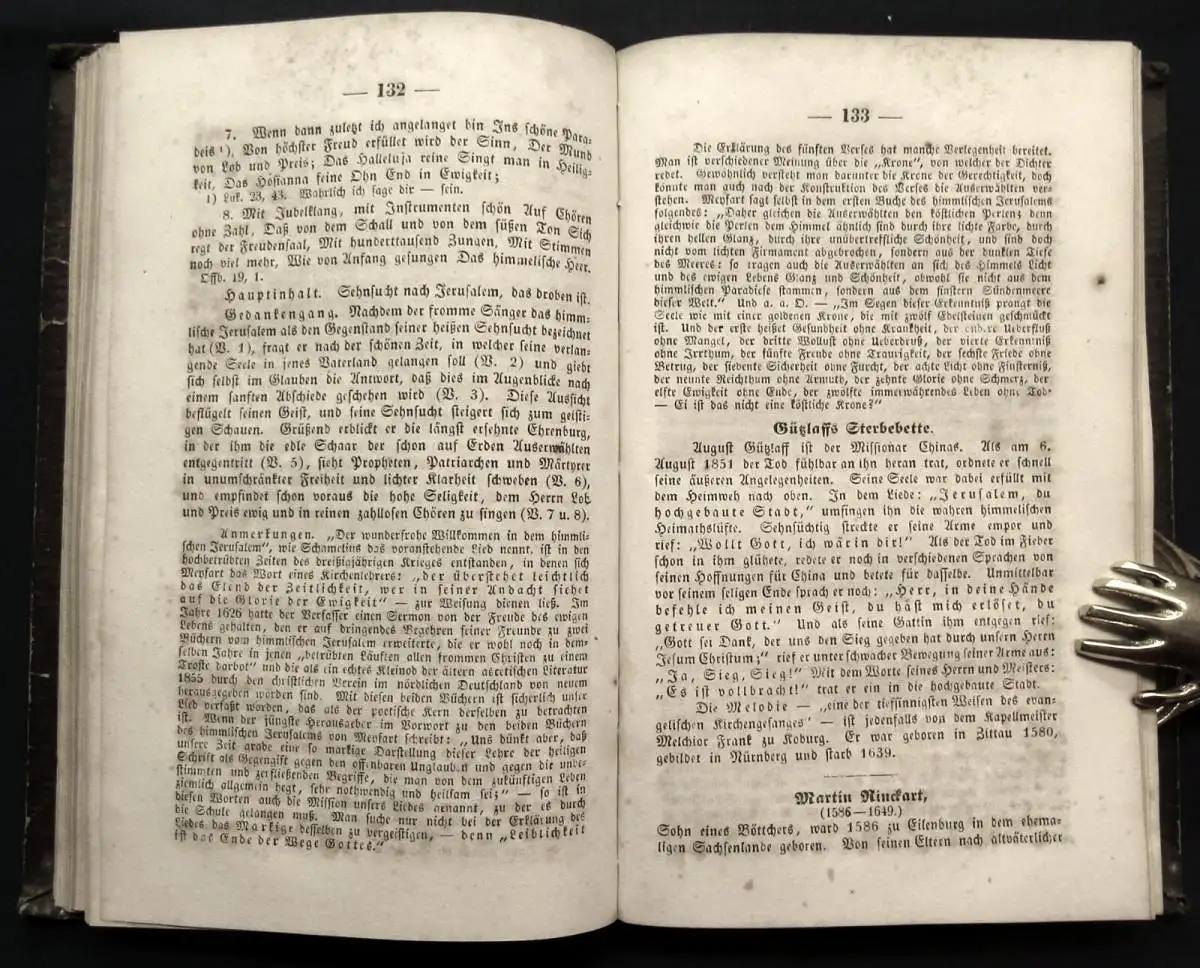 — 132 —
7. Wenn dann zuletzt ich angelanget bin Ins schöne Para-
deis ¹), Von höchster Freud erfüllet wird der Sinn, Der Mund
von Lob und Preis; Das Halleluja reine Singt man in Heilig-
keit, Das Hosianna feine Ohn End in Ewigkeit;
1) Luk. 23, 43. Wahrlich ich sage dir — sein.
8. Mit Jubelklang, mit Instrumenten schön Auf Chören
ohne Zahl, Daß von dem Schall und von dem süßen Ton Sich
regt der Freudensaal, Mit hunderttausend Zungen, Mit Stimmen
noch viel mehr, Wie von Anfang gesungen Das himmelische Heer.
Offb. 19, 1.
Hauptinhalt. Sehnsucht nach Jerusalem, das droben ist.
Gedankengang. Nachdem der fromme Sänger das himm-
lische Jerusalem als den Gegenstand seiner heißen Sehnsucht bezeichnet
hat (V. 1), fragt er nach der schönen Zeit, in welcher seine verlan-
gende Seele in jenes Vaterland gelangen soll (V. 2) und giebt
sich selbst im Glauben die Antwort, daß dies im Augenblicke nach
einem sanften Abschiede geschehen wird (V. 3). Diese Aussicht
beflügelt seinen Geist, und seine Sehnsucht steigert sich zum geisti-
gen Schauen. Grüßend erblickt er die längst ersehnte Ehrenburg,
in der ihm die edle Schaar der schon auf Erden Auserwählten
entgegentritt (V. 5), sieht Propheten, Patriarchen und Märtyrer
in unumschränkter Freiheit und lichter Klarheit schweben (V. 6),
und empfindet schon voraus die hohe Seligkeit, dem Herrn Lob
und Preis ewig und in reinen zahllosen Chören zu singen (V. 7 u. 8).
Anmerkungen. „Der wunderfrohe Willkommen in dem himmli-
schen Jerusalem“, wie Schametius das voranstehende Lied nennt, ist in den
hochbetrübten Zeiten des dreißigjährigen Krieges entstanden, in denen sich
Meyfart das Wort eines Kirchenlehrers: „der überstehet leichtlich
das Elend der Zeitlichkeit, wer in seiner Andacht siehet
auf die Glorie der Ewigkeit“ — zur Weisung dienen ließ. Im
Jahre 1626 hatte der Verfasser einen Sermon von der Freude des ewigen
Lebens gehalten, den er auf dringendes Begehren seiner Freunde zu zwei
Büchern vom himmlischen Jerusalem erweiterte, die er wohl noch in dem-
selben Jahre in jenen „betrübten Läuften allen frommen Christen zu einem
Troste darbot“ und die als ein echtes Kleinod der ältern ascetischen Literatur
1855 durch den christlichen Verein im nördlichen Deutschland von neuem
herausgegeben worden sind. Mit diesen beiden Büchern ist sicherlich unser
Lied verfaßt worden, das als der poetische Kern derselben zu betrachten
ist. Wenn der jüngste Herausgeber im Vorwort zu den beiden Büchern
des himmlischen Jerusalems von Meyfart schreibt: „Uns dünkt aber, daß
unsere Zeit grade eine so markige Darstellung dieser Lehre der heiligen
Schrift als Gegengift gegen den offenbaren Unglauben und gegen die unbe-
stimmten und zerfließenden Begriffe, die man von dem zukünftigen Leben
ziemlich allgemein hegt, sehr nothwendig und heilsam sei;“ — so ist in
diesen Worten auch die Mission unsers Liedes genannt, zu der es durch
die Schule gelangen muß. Man suche nur nicht bei der Erklärung des
Liedes das Markige desselben zu vergeistigen, — denn „Leiblichkeit
ist das Ende der Wege Gottes.“
— 133 —
Die Erklärung des fünften Verses hat manche Verlegenheit bereitet.
Man ist verschiedener Meinung über die „Krone“, von welcher der Dichter
redet. Gewöhnlich versteht man darunter die Krone der Gerechtigkeit, doch
könnte man auch nach der Konstruktion des Verses die Auserwählten ver-
stehen. Meyfart sagt selbst in dem ersten Buche des himmlischen Jerusalems
folgendes: „Daher gleichen die Auserwählten den köstlichen Perlen; denn
gleichwie die Perlen dem Himmel ähnlich sind durch ihre lichte Farbe, durch
ihren hellen Glanz, durch ihre unübertreffliche Schönheit, und sind doch
nicht vom lichten Firmament abgebrochen, sondern aus der dunklen Tiefe
des Meeres: so tragen auch die Auserwählten an sich des Himmels Licht
und des ewigen Lebens Glanz und Schönheit, obwohl sie nicht aus dem
himmlischen Paradiese stammen, sondern aus dem finstern Sündenmeere
dieser Welt.“ Und a. a. O. — „Im Segen dieser Erkenntniß prangt die
Seele wie mit einer goldenen Krone, die mit zwölf Edelsteinen geschmückt
ist. Und der erste heißet Gesundheit ohne Krankheit, der andere Ueberfluß
ohne Mangel, der dritte Wollust ohne Ueberdruß, der vierte Erkenntniß
ohne Irrthum, der fünfte Freude ohne Traurigkeit, der sechste Friede ohne
Betrug, der siebente Sicherheit ohne Furcht, der achte Licht ohne Finsterniß,
der neunte Reichthum ohne Armuth, der zehnte Glorie ohne Schmerz, der
elfte Ewigkeit ohne Ende, der zwölfte immerwährendes Leben ohne Tod·
— Ei ist das nicht eine köstliche Krone?“
Gützlaffs Sterbebette.
August Gützlaff ist der Missionar Chinas. Als am 6.
August 1851 der Tod fühlbar an ihn heran trat, ordnete er schnell
seine äußeren Angelegenheiten. Seine Seele war dabei erfüllt mit
dem Heimweh nach oben. In dem Liede: „Jerusalem, du
hochgebaute Stadt,“ umfingen ihn die wahren himmelischen
Heimathslüfte. Sehnsüchtig streckte er seine Arme empor und
rief: „Wollt Gott, ich wär in dir!“ Als der Tod im Fieber
schon in ihm glühete, redete er noch in verschiedenen Sprachen von
seinen Hoffnungen für China und betete für dasselbe. Unmittelbar
vor seinem seligen Ende sprach er noch: „Herr, in deine Hände
befehle ich meinen Geist, du hast mich erlöset, du
getreuer Gott.“ Und als seine Gattin ihm entgegen rief:
„Gott sei Dank, der uns den Sieg gegeben hat durch unsern Herrn
Jesum Christum;“ rief er unter schwacher Bewegung seiner Arme aus:
„Ja, Sieg, Sieg!“ Mit dem Worte seines Herrn und Meisters:
„Es ist vollbracht!“ trat er ein in die hochgebaute Stadt.
Die Melodie — „eine der tiefsinnigsten Weisen des evan-
gelischen Kirchengesanges“ — ist jedenfalls von dem Kapellmeister
Melchior Frank zu Koburg. Er war geboren in Zittau 1580,
gebildet in Nürnberg und starb 1639.
Martin Rinckart,
(1586—1649.)
Sohn eines Böttchers, ward 1586 zu Eilenburg in dem ehema-
ligen Sachsenlande geboren. Von seinen Eltern nach altväterlicher